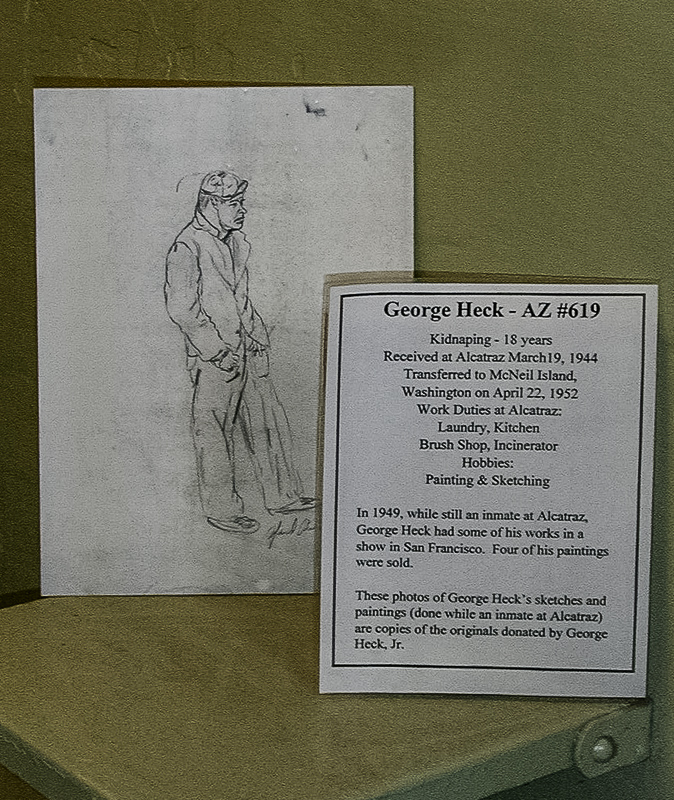 George Heck - AZ #619
Kidnaping - 18 years
Received at Alcatraz March19, 1944
Transferred to McNeil Island,
Washington on April 22, 1952
Work Duties at Alcatraz:
Laundry, Kitchen
Brush Shop, Incinerator
Hobbies:
Painting & Sketching
In 1949, while still an inmate at Alcatraz,
George Heck had some of his works in a
show in San Francisco. Four of his paintings
were sold.
These photos of George Heck's sketches and
paintings (done while an inmate at Alcatraz)
are copies of the originals donated by George
Heck, Jr.